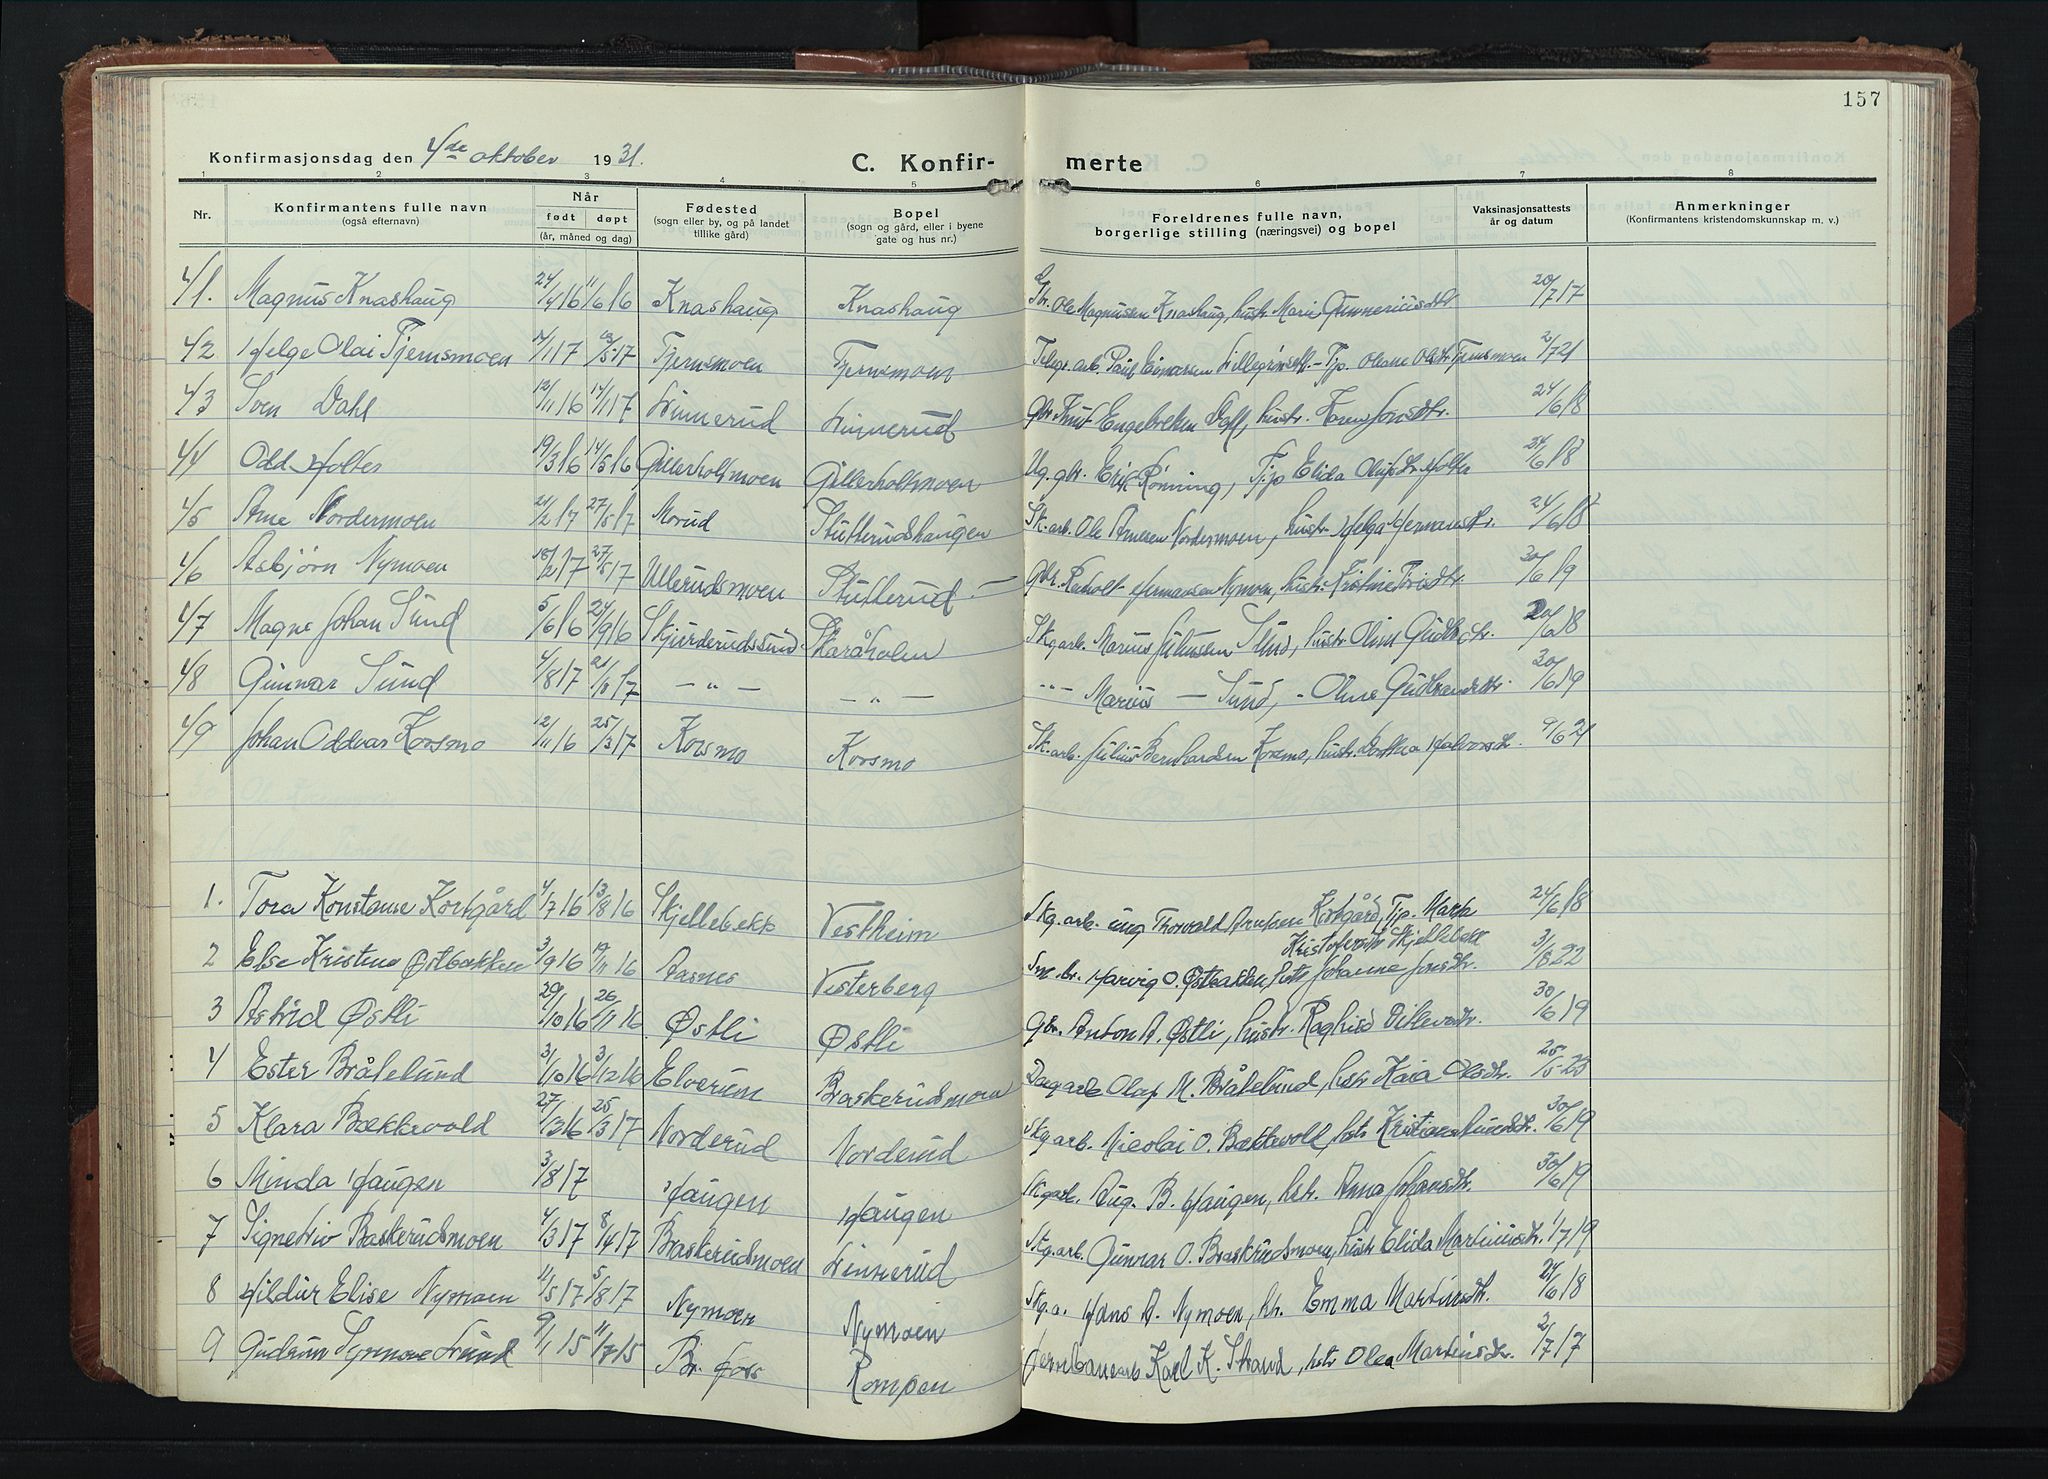 157
Konfirmasjonsdag den 4de oktober 1931.
C. Konfir- merte
1 2 3 4 5 6 7 8
Nr. Konfirmantens fulle navn (også efternavn) Når født døpt (år, måned og dag) Fødested (sogn eller by, og på landet tillike gård) Bopel (sogn og gård, eller i byene gate og hus nr.) Foreldrenes fulle navn, borgerlige stilling (næringsvei) og bopel Vaksinasjonsattests år og datum Anmerkninger (Konfirmantens kristendomskunnskap m. v.)
41. Magnus Knashaug 24/4 16 11/6 16 Knashaug Knashaug Gbr. Ole Magnussen Knashaug, hustr. Marie Gunneriusdtr 20/7 17
42 Helge Olai Tjernsmoen 1 17 5 17 Tjernsmoen Tjernsmoen Telegr. arb. Paul Einarsen - Tjp. Oleane Olsdtr Tjernsmoen 2/7 21
43 Sven Dahl 12/11 16 14/1 17 Linnerud Linnerud Gbr. Knut Engebretsen Dahl, hustr. Jonsdtr. 24/6 18
44 Odd Holter 19/3 16 14/5 16 Gillerholtmoen Gillerholtmoen Ug. gbr. Erik Rønning, Tjp Elida Olufsdtr. Holter 24/6 18
45 Arne Nordermoen 21/2 17 27/5 17 Morud Stutterudshaugen Sk. arb. Ole Arnesen Nordermoen, hustr. Helga Hermansdtr. 24/6 18
46 Asbjørn Nymoen 18/2 17 27/5 17 Ullerudsmoen Stutterud - Gbr. Hermansen Nymoen, hustr. Kristine 30/6 19
47 Magne Johan Sund 5/6 16 24/9 16 Skjurderudssund Skaråholen Skgarb. Marius Juliussen Sund, hustr Oline Gudbrdtr. 20/6 18
48 Gunnar Sund 4/8 17 21/10 17 - " - - " - - " - Marius - Sund, - Oline Gudbrandsdtr. 30/6 19
49 Johan Oddvar Korsmo 12/11 16 25/3 17 Korsmo Korsmo Sk. arb. Julius Bernhardsen Korsmo, hustr. Dorthea Halvorsdtr. 9/6 21
1. Tora Konstanse Kortgård 4/7 16 13/8 16 Skjellebekk Vestheim Skg. arb. ung Thorvald Arntsen Kortgård, Tjp. Marta
Kristofersdtr Skjellebekk 24/6 18
2 Else Kristine Østbakken 3/9 16 19/11 16 Aasnes Vesterberg Sm. br. Harvig O. Østbakken, hstr Johanne Jonsdtr. 3/8 22
3 Astrid Østli 29/10 16 26/11 16 Østli Østli Gbr. Anton A. Østli, hustr. Raghild Ditlevsdtr. 30/6 19
4 Ester Bråtelund 3/10 16 3/12 16 Elverum Braskerudsmoen Dagarb Olaf M. Bråtelund, hstr Kaia Olsdtr. 25/5 23
5 Klara Bækkevold 27/ 3 16 25/3 17 Norderud Norderud Skg arb. Nicolai O. Bækkevold, hstr Kristiane 30/6 19
6 Minda Haugen 3/8 17 Haugen Haugen Skgarb. Aug. B. Haugen, hstr. Anna Johansdtr. 30/6 19
7 Signe Liv Baskerudsmoen 4/3 17 8/4 17 Braskerudsmoen Linnerud Skg. arb. Gunnar O. Braskrudsmoen, hustr Elida Martiniusdtr. 1/7 19
8 Hildur Elise Nymoen 11/5 17 5/8 17 Nymoen Nymoen Skg. a. Hans A. Nymoen, h. Emma Martinsdtr. 24/6 18
9 Gudrun Synnøve 9/1 15 11/7 15 Br. foss Rompen Jernbanearb Karl K. Strand, hstr Olea Martinsdtr. 2/7 17